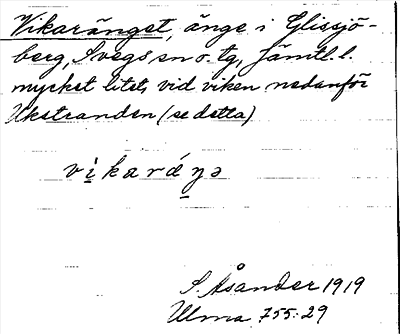 Vikaränget, änge i Glissjö-
berg, Svegs sn o. tg, Jämtl. l.
mycket litet, vid viken nedanför
Ukstranden (se detta)
vikaráŋə
S. Åsander 1919
Ulma 755:29